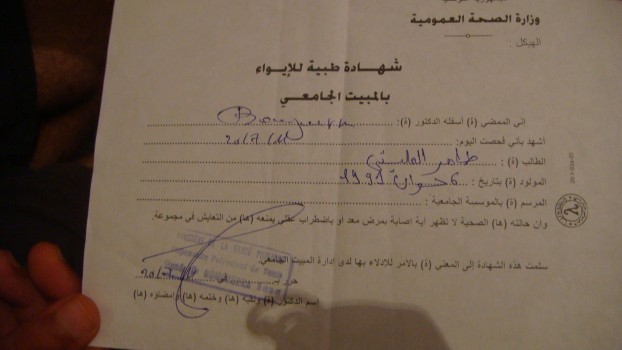 وزارة الصحة العمومية
الهيكل :
شهادة طبية للإيواء
بالمبيت الجامعي
إني الممضي (ة) أسفله الدكتور (ة) :
أشهد بأني فحصت اليوم :
الطالب (ة) :
المولود (ة) بتاريخ : 6 جوان 1991
المرسم (ة) بالمؤسسة الجامعية :
وأن حالته (ها) الصحية لا تظهر أية إصابة بمرض معد أو باضطراب عقلي يمنعه (ها) من التعايش في مجموعة.
سلمت هذه الشهادة إلى المعني (ة) بالأمر للإدلاء بها لدى إدارة المبيت الجامعي.
حرر بـ في
اسم الدكتور (ة) ولقبه (ها) وختمه (ها) وإمضاؤه (ها)